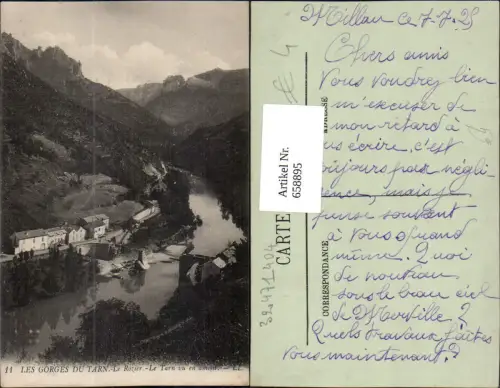 11 LES GORGES DU TARN. - Le Rozier. - Le Tarn vu en amont. - LL
Artikel Nr.
658895
CARTE
CORRESPONDANCE
Millau ce 7-7-25
Chers amis
Vous voudrez bien
m'excuser de
mon retard à
écrire, c'est
toujours pas négli-
gence, mais je
pense souvent
à vous quand
même. Quoi
de nouveau
sous le beau ciel
de Marville?
Quels travaux faites
vous maintenant?